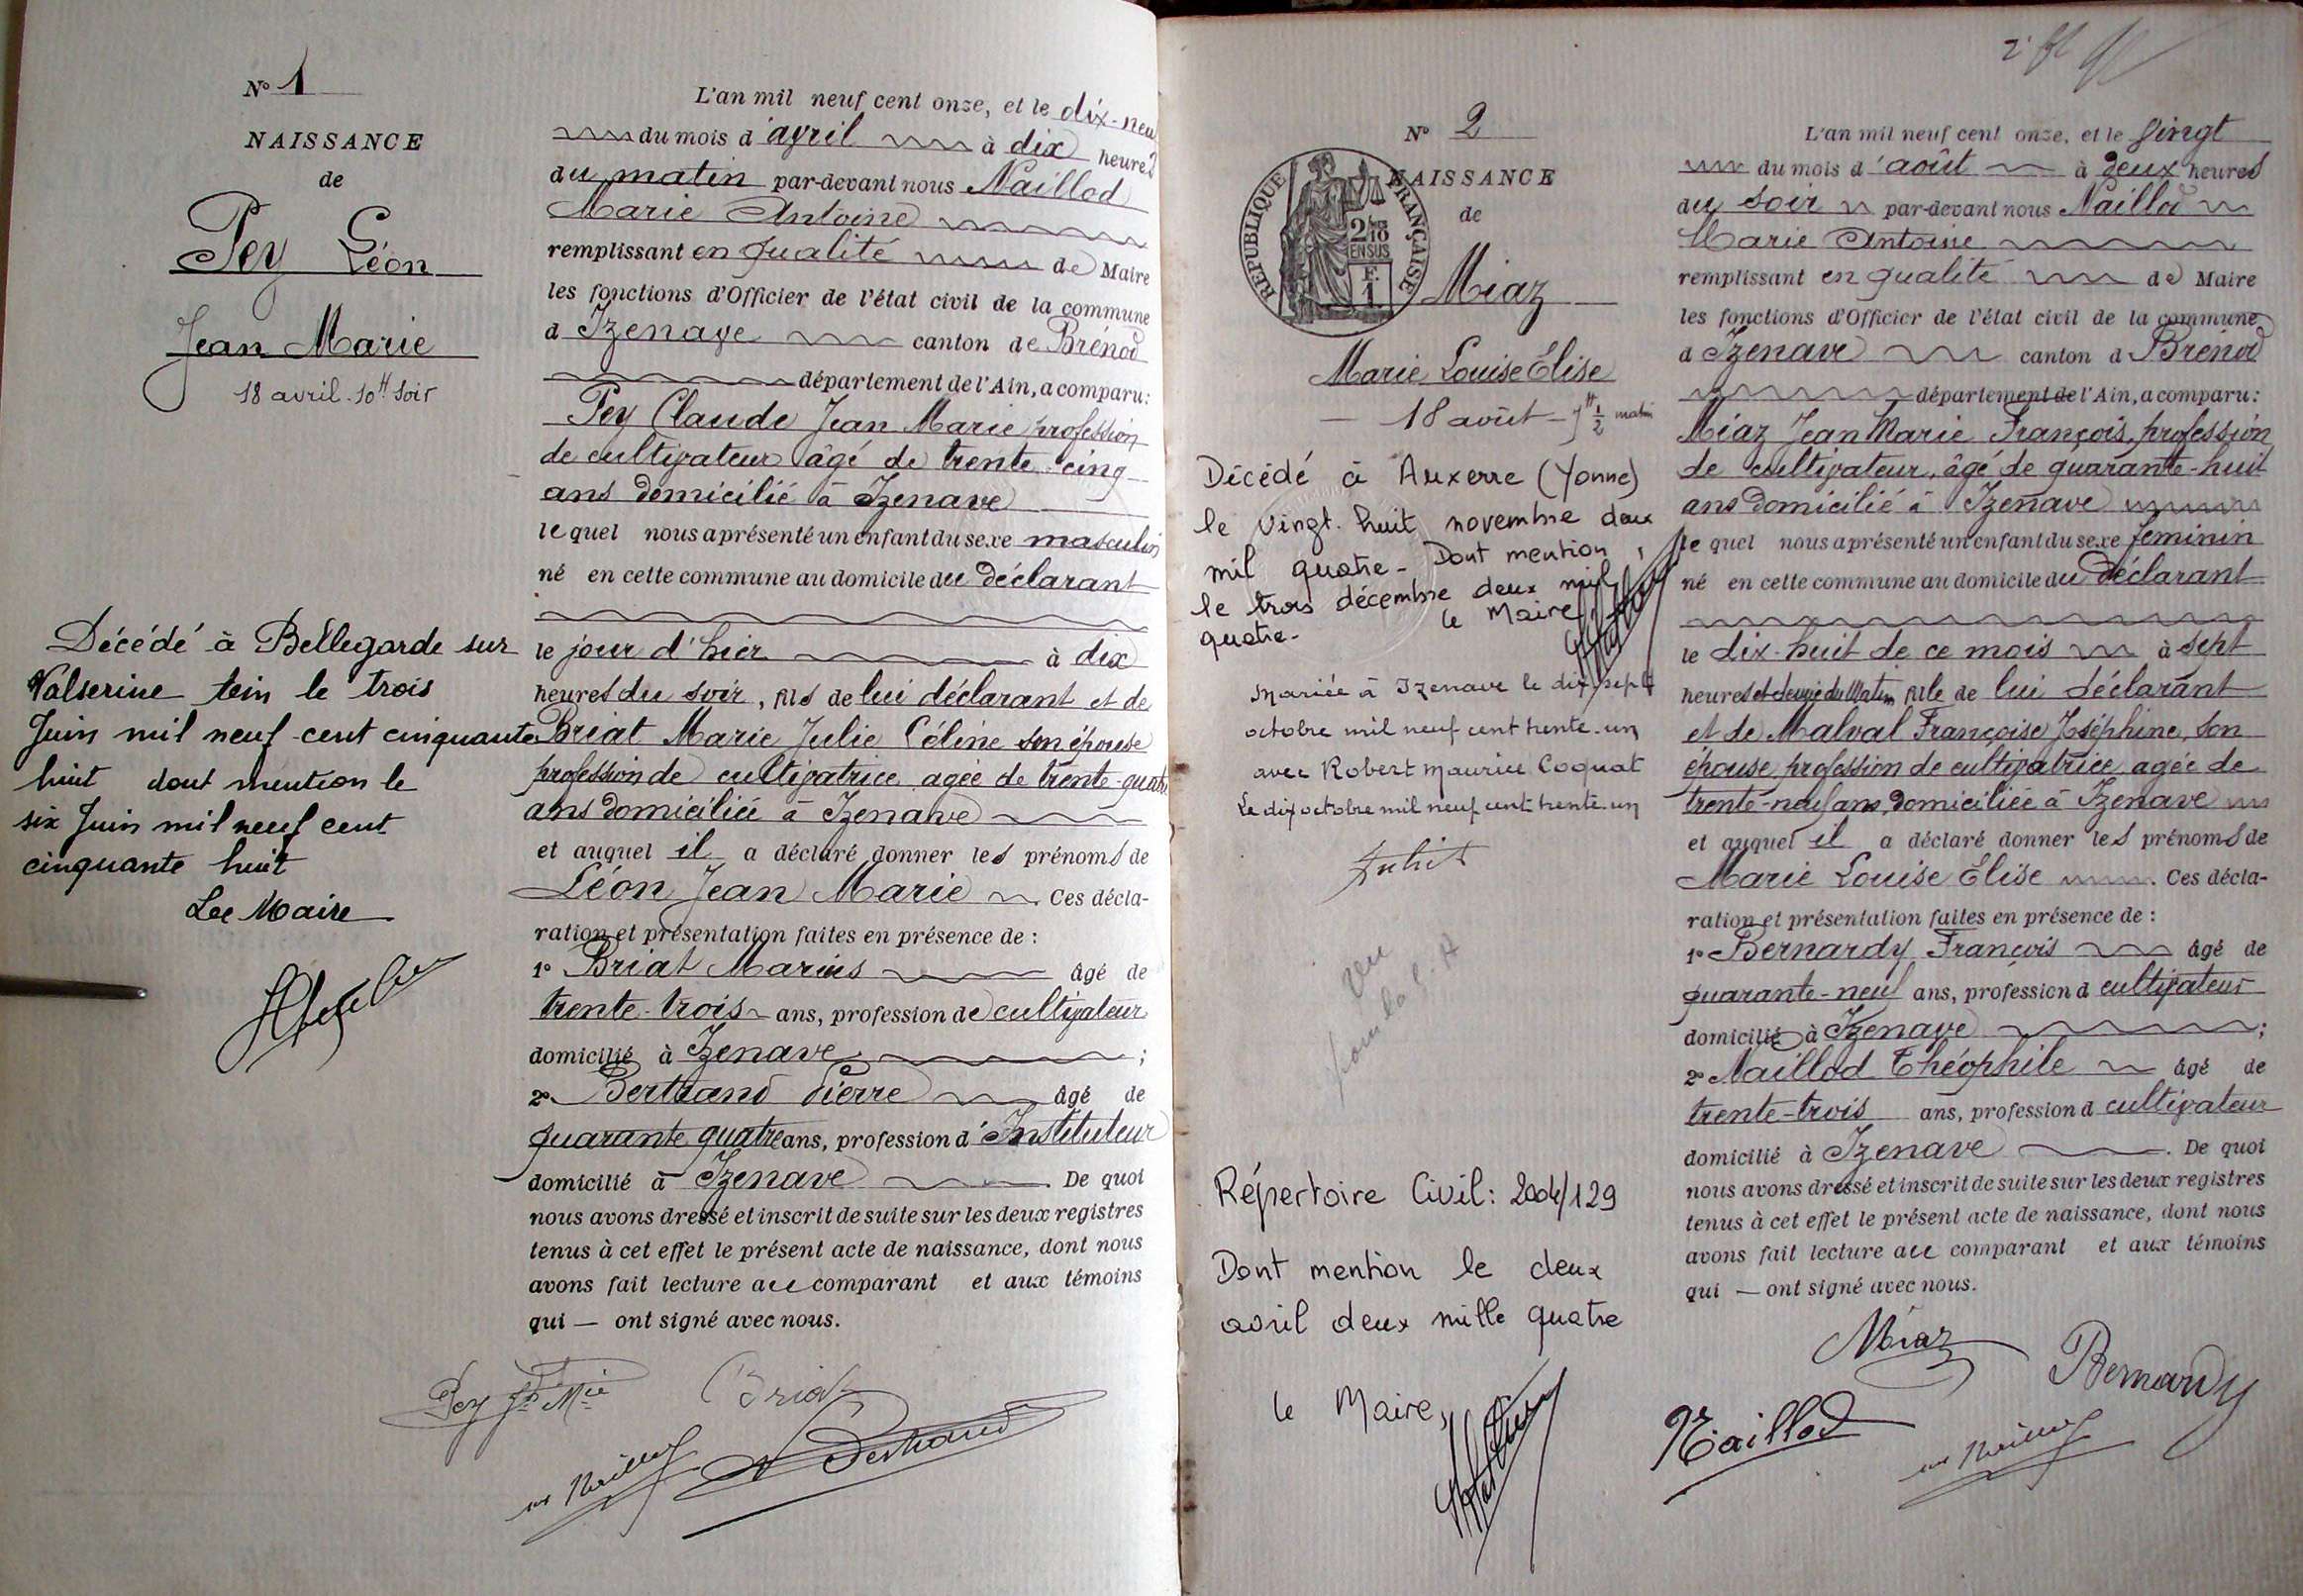 N° 1
NAISSANCE
de
Pey Léon
Jean Marie
18 avril. 10H soir
Décédé à Bellegarde sur
Valserine le trois
Juin mil neuf cent cinquante
huit dont mention le
six Juin mil neuf cent
cinquante huit
Le Maire
L'an mil neuf cent onze, et le dix-neu
du mois d'avril à dix heures
du matin par-devant nous Naillod
Marie Antoine
remplissant en qualité de Maire
les fonctions d'Officier de l'état civil de la commune
d Izenave canton de Brénod
département de l'Ain, a comparu:
Pey Claude Jean Marie profession
de cultivateur âgé de trente-cinq
ans domicilié à Izenave
lequel nous a présenté un enfant du sexe masculin
né en cette commune au domicile du déclarant
le jour d'hier à dix
heures du soir, fils de lui déclarant et de
Briat Marie Julie Céline son épouse
profession de cultivatrice agée de trente-quatre
ans domiciliée à Izenave
et auquel il a déclaré donner les prénoms de
Léon Jean Marie Ces décla-
ration et présentation faites en présence de :
1° Briat Marius âgé de
trente-trois ans, profession de cultivateur
domicilié à Izenave ;
2° Bertrand Pierre âgé de
quarante quatre ans, profession d'Instituteur
domicilié à Izenave . De quoi
nous avons dressé et inscrit de suite sur les deux registres
tenus à cet effet le présent acte de naissance, dont nous
avons fait lecture au comparant et aux témoins
qui — ont signé avec nous.
Pey Jn Mie Briat
Bertrand
N° 2
NAISSANCE
de
RÉPUBLIQUE FRANÇAISE
EN SUS
F.
1
Miaz
Marie Louise Élise
— 18 août - 7H 1/2 matin
Décédé à Auxerre (Yonne)
le Vingt. huit novembre deux
mil quatre - Dont mention,
le trois décembre deux mil
quatre - le Maire
Mariée à Izenave le dix sept
octobre mil neuf cent trente-un
avec Robert Maurice Coquat
Le dix octobre mil neuf cent trente-un
Vu
Répertoire Civil: 2004/129
Dont mention le deux
avril deux mille quatre
le Maire,
L'an mil neuf cent onze, et le Vingt
du mois d'août à deux heures
du soir par-devant nous Naillod
Marie Antoine
remplissant en qualité de Maire
les fonctions d'Officier de l'état civil de la commune
d Izenave canton d Brénod
département de l'Ain, a comparu:
Miaz Jean Marie François, profession
de cultivateur, âgé de quarante-huit
ans domicilié à Izenave
lequel nous a présenté un enfant du sexe féminin
né en cette commune au domicile du déclarant
le dix-huit de ce mois à sept
heures et demie du Matin, fille de lui déclarant
et de Malval Françoise Joséphine, son
épouse, profession de cultivatrice agée de
trente-neuf ans, domiciliée à Izenave
et auquel il a déclaré donner les prénoms de
Marie Louise Elise . Ces décla-
ration et présentation faites en présence de :
1° Bernardy François âgé de
quarante-neuf ans, profession d cultivateur
domicilié à Izenave ;
2° Naillod Théophile âgé de
trente-trois ans, profession d cultivateur
domicilié à Izenave . De quoi
nous avons dressé et inscrit de suite sur les deux registres
tenus à cet effet le présent acte de naissance, dont nous
avons fait lecture au comparant et aux témoins
qui — ont signé avec nous.
Miaz Bernardy
Naillod